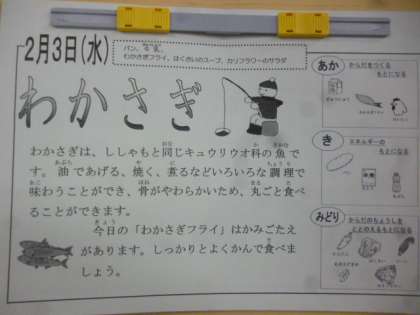 2月3日(水)
パン、牛乳、
わかさぎフライ、はくさいのスープ、カリフラワーのサラダ
わかさぎ
わかさぎは、ししゃもと同じキュウリウオ科の魚で
す。油であげる、焼く、煮るなどいろいろな調理で
味わうことができ、骨がやわらかいため、丸ごと食べ
ることができます。
今日の「わかさぎフライ」はかみごたえ
があります。しっかりとよくかんで食べま
しょう。
あか
からだをつくる
もとになる
き
エネルギーの
もとになる
みどり
からだのちょうしを
ととのえるもとになる